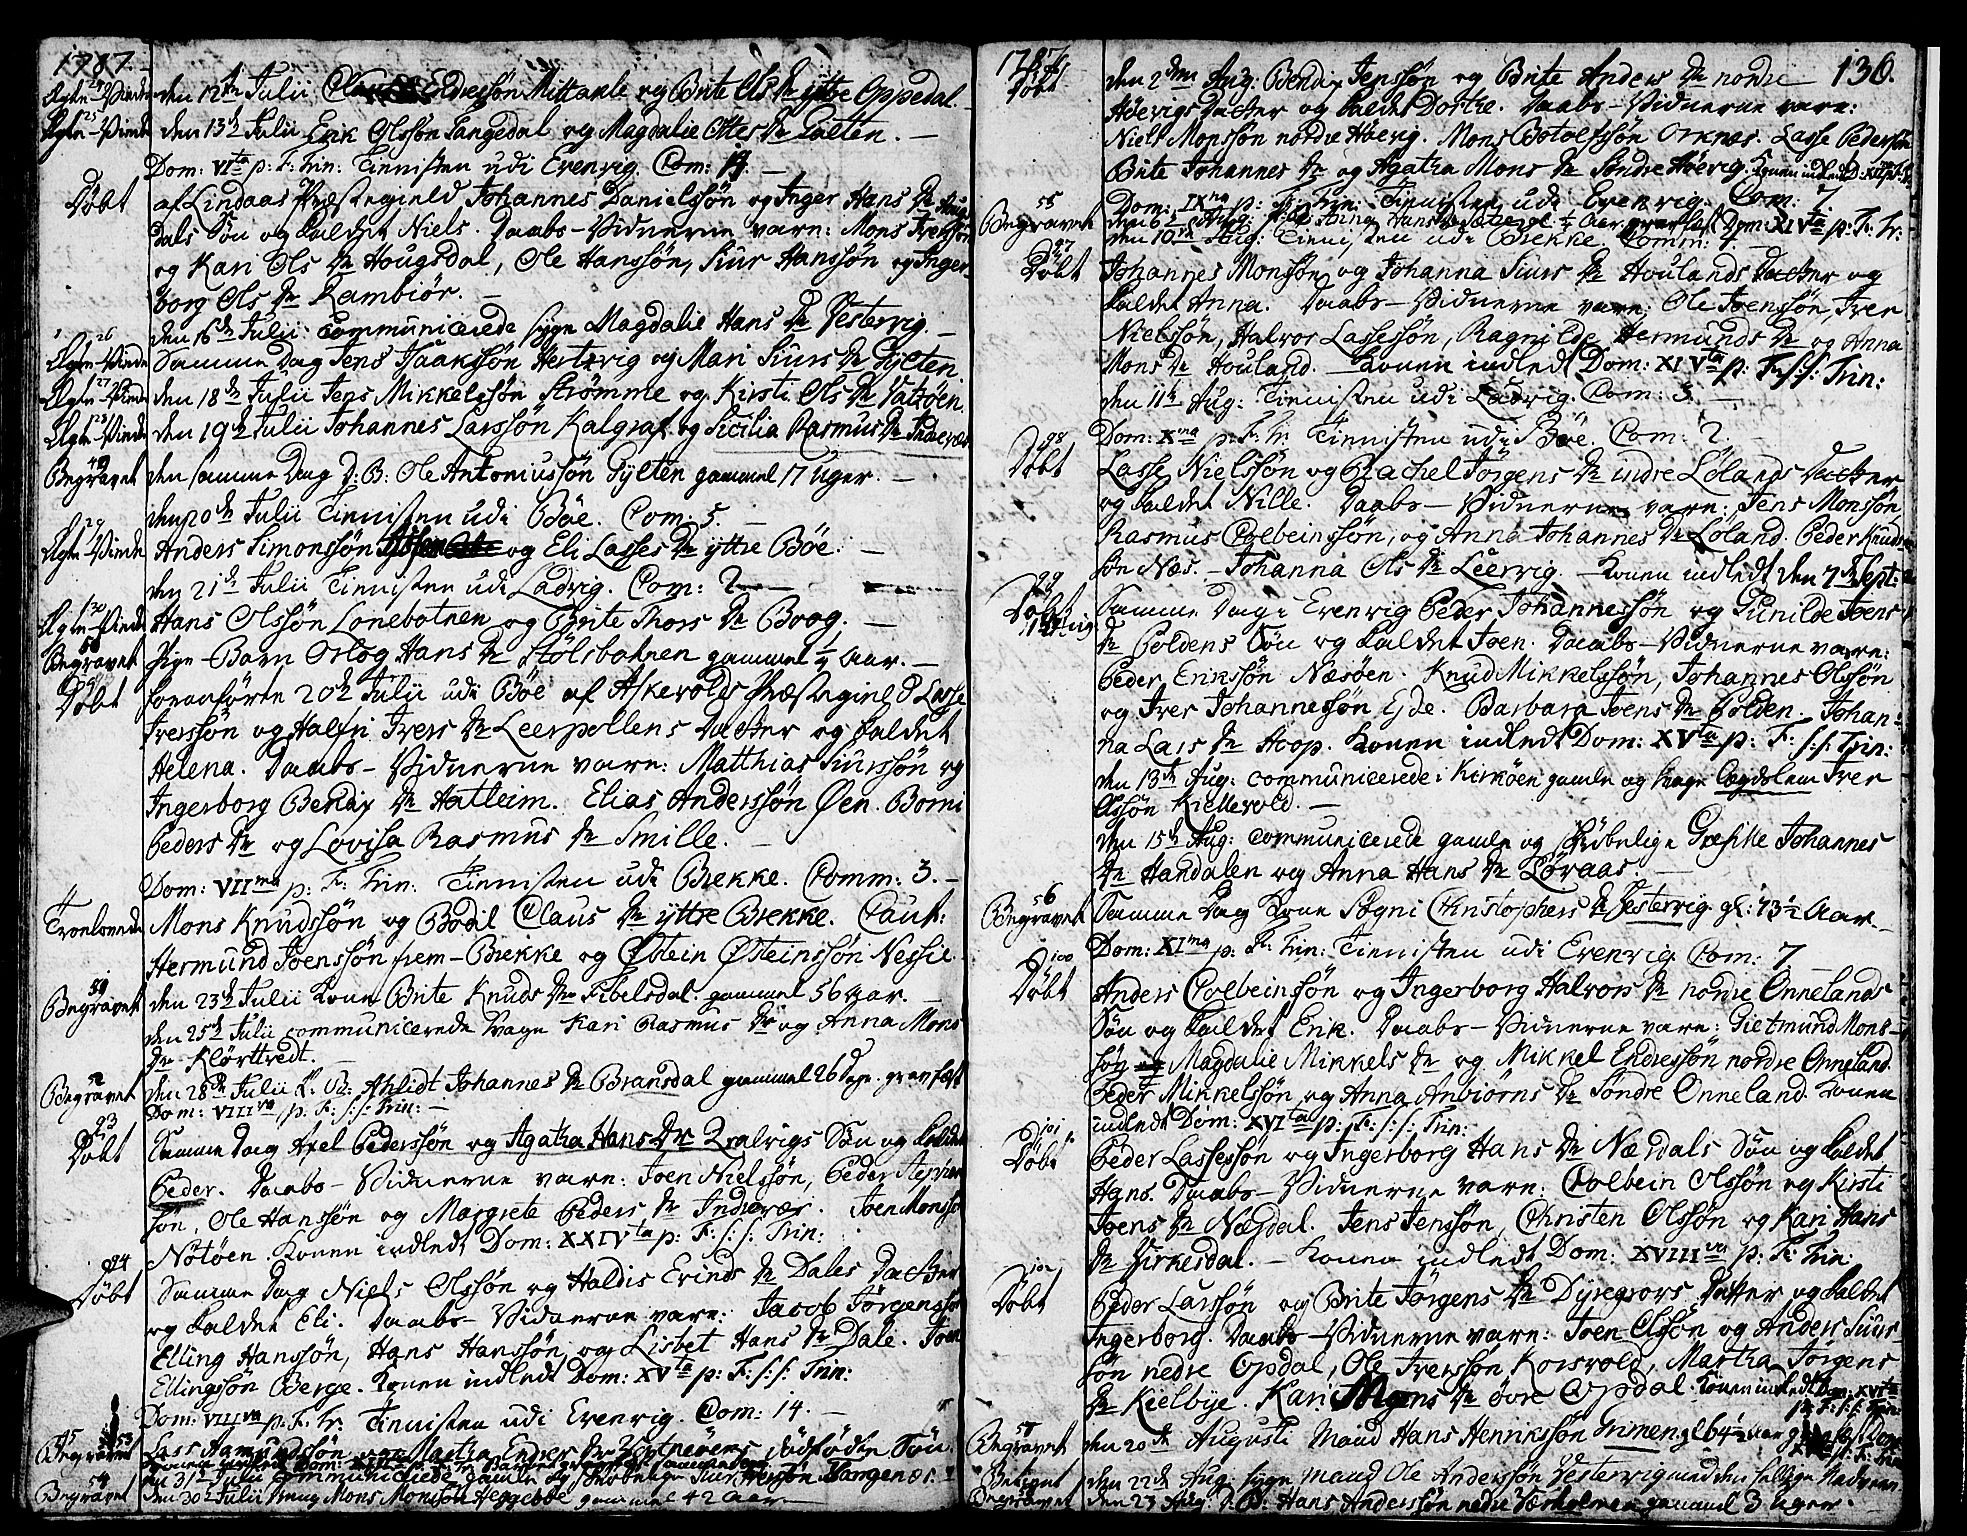 1787.
Ægte-Viede den 12te Julii Endresøn Mittanle og Brite Ols Dr yttre Oppedal.
Ægte-Viede den 13de Julii Erik Olssøn Tangedal og Magdalie Ottes Dr Tveten.
Dom: VIta p: F: Trin: Tienisten udi Evenvig. Com: 19.
Døbt af Lindaas Præstegield Johannes Danielssøn og Inger Hans Dr
dals Søn og kaldet Niels. Daabs-Vidnerne vare: Mons
og Kari Ols Dr Hougsdal, Ole Hanssøn, Siur Hanssøn og Inger-
borg Ols Dr Rambiør.
den 16de Julii communicerede syge Magdalie Hans Dr Vestervig.
26 Ægte-Viede Samme Dag Jens Isaakssøn Hertevig og Mari Siurs Dr Gylten.
27 Ægte-Viede den 18de Julii Jens Mikkelssøn Strømme og Kirsti Ols Dr Valsøen.
28 Ægte-Viede den 19de Julii Johannes Larssøn Kalgraf og Sicilia Rasmus Dr
49 Begravet den samme Dag d: B: Ole Antoniussøn Gylten gammel 17 Uger.
den 20de Julii Tienisten udi Bøe. Com: 5.
29 Ægte-Viede Anders Simonssøn og Eli Lasses Dr yttre Bøe.
den 21de Julii Tienisten udi Ladvig. Com: 2
30 Ægte-Viede Hans Olssøn Lonebotnen og Brite Thors Dr Boog.
50 Begravet Pige-Barn Orlog Hans Dr Stølsbotnen gammel 1/4 Aar.
Døbt foranførte 20de Julii udi Bøe af Askevolds Præstegield Lasse
Iverssøn og Halfri Ivers Dr Leerpollens Datter og kaldet
Helena. Daabs-Vidnerne vare: Matthias Siurssøn og
Ingerborg Bendix Dr Hatleim. Elias Anderssøn Øen. Borni
Peders Dr og Lovisa Rasmus Dr Smille.
Dom: VIIma p: F: Trin: Tienisten udi Brekke. Comm: 3.
4 Troelovede Mons Knudssøn og Bodil Claus Dr yttre Brekke. Caut:
Hermund Joenssøn frem-Brekke og Østein Østeinssøn Nessie.
51 Begravet den 23de Julii Kone Brite Knuds Dr Fibelsdal. gammel 56 Aar.
den 25de Julii communicerede svage Kari Rasmus Dr og Anna Mons
Dr Klørttredt.
52 Begravet den 28de Julii Johannes Dr Bransdal gammel 26 Dage.
Dom: VIIIva p: F: S: S: Trin:
93 Døbt Samme Dag Axel Pederssøn og Agatha Hans Dr Søn og kaldet
Peder. Daabs-Vidnerne vare: Joen Nielssøn, Peder
søn, Ole Hanssøn og Margrete Peders Dr Indrevær. Joen Monssøn
Nøtøen. Konen indledt Dom: XXIVta p: F: S: S: Trin:
94 Døbt Samme Dag Niels Olssøn og Haldis Erinds Dr Dales Datter
og kaldet Eli. Daabs-Vidnerne vare: Jacob Jørgenssøn
Elling Hanssøn, Hans Hanssøn, og Lisbet Hans Dr Dale. Joen
Ellingssøn Berge. Konen indledt Dom: XVta p: F: S: S: Trin:
Dom: VIIIva p: F: Tr: Tienisten udi Evenvig. Com: 14.
95 53 Begravet Lars Aamundssøn og Martha Enders Dr dødfødte Søn
den 31te Julii communicerede gamle
54 Begravet den 30te Julii Mons Monssøn Heggebøe gammel 42 Aar
1787 136.
Døbt den 2den Aug: Bendix Jenssøn og Brite Anders Dr nordre
Høevigs Datter og kaldet Dorthe. Daabs-Vidnerne vare:
Niels Monssøn nordre Høevig. Mons Botolfssøn Orknæs. Lasse Pederssøn
Brite Johannes Dr og Agatha Mons Dr Søndre Høevig. Konen indledt
Dom: IXna p: F: Trin: Tienisten udi Evenvig. Com: 7.
55 Begravet den 6te Aug: Anna Hans
den 10de Aug: Tienisten udi Brekke. Comm: 4
97 Døbt Johannes Monssøn og Johanna Siurs Dr Houlands Datter og
kaldet Anna. Daabs-Vidnerne vare: Ole Joenssøn, Iver
Nielssøn, Halvor Lassessøn, Ragnilde Hermunds Dr og Anna
Mons Dr Houland. Konen indledt Dom: XIVta p: F: S: S: Trin:
den 11te Aug: Tienisten udi Ladvig. Com: 3.
Dom: Xma p: F: Tr: Tienisten udi Bøe. Com: 2.
98 Døbt Lasse Nielssøn og Rachel Jørgens Dr indre Lølands Datter
og kaldet Nille. Daabs-Vidnerne vare: Jens Monssøn
Rasmus Colbeinssøn, og Anna Johannes Dr Løland. Peder Knuds-
søn Næs. Johanna Ols Dr Leervig. Konen indledt den 7de Sept:
99 Døbt i Evenvig Samme Dag i Evenvig Peder Johannessøn og Gunilde Joens
Dr Poldens Søn og kaldet Joen. Daabs-Vidnerne vare:
Peder Erikssøn Næsøen. Knud Mikkelssøn, Johannes Olssøn
og Iver Johannessøn Ejde. Barbara Joens Dr Polden. Johan-
na Lars Dr Hoop. Konen indledt Dom: XVta p: F: S: S: Trin:
den 13de Aug: communicerede i Kirkøen gamle og svage Iver
Olssøn Kiellevold.
den 15de Aug: communicerede gamle og skrøbelige Græsille Johannes
Dr Handalen og Anna Hans Dr Løraas.
56 Begravet Samme Dag Kone Sogni Christophers Dr Vestervig. gl: 73 1/2 Aar.
Dom: XIma p: F: Trin: Tienisten udi Evenvig Com: 7
100 Døbt Anders Colbeinssøn og Ingerborg Halvors Dr nordre Ønnelands
Søn og kaldet Erik. Daabs-Vidnerne vare: Gietmund Mons-
søn og Magdalie Mikkels Dr og Mikkel Endressøn nordre Onneland.
Peder Mikkelssøn og Anna Anbiørns Dr Søndre Onneland. Konen
indledt Dom: XVIta p: F: S: S: Trin:
101 Døbt Peder Lassessøn og Ingerborg Hans Dr Næsdals Søn og kaldet
Hans. Daabs-Vidnerne vare: Colbein Olssøn og Kirsti
Joens Dr Næsdal. Jens Jenssøn, Christen Olssøn og Kari Hans
Dr Virkesdal. Konen indledt Dom: XVIIIva p: F: Trin
102 Døbt Peder Larssøn og Brite Jørgens Dr Dyregrovs Datter og kaldet
Ingerborg. Daabs-Vidnerne vare: Joen Olssøn og Anders Siurs
søn nedre Opdal, Ole Iverssøn Korsvold, Martha Jørgens
Dr Kielbye. Kari Mons Dr øvre Opdal. Konen indledt Dom: XVIta
p: F: S: S: Trin:
57 Begravet den 20de Augusti Mand Hans Henrikssøn Grimen gl 64 1/2 Aar
Betient den 22de Aug: syge Mand Ole Anderssøn Vestervig med den hellige Nadvere
Begravet den 23 Aug: d: B: Hans Anderssøn nedre Værholmen gammel 3 Uger.